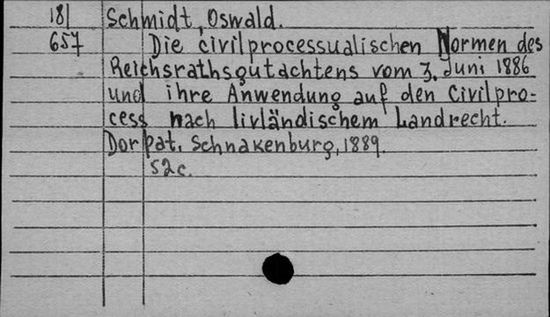 181 Schmidt, Oswald.
657 Die civilprocessualischen Normen des
Reichsrathsgutachtens vom 3. Juni 1886
und ihre Anwendung auf den Civilpro-
cess nach livländischem Landrecht.
Dorpat. Schnakenburg, 1889.
52c.